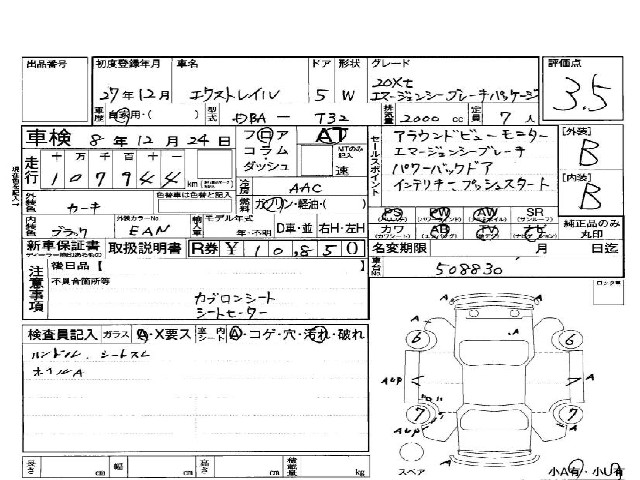 出品番号 初度登録年月 車名 ドア 形状 グレード 評価点
27年12月 エクストレイル 5 W 20Xt
エマージェンシーブレーキパッケージ
3.5
車歴 自家用・( ) 型式 DBA－ T32 排気量 2000 cc 定員 7 人
車検 8年12月24日 フロア AT
コラム MTのみ記入
ダッシュ 速
走行 十 万 千 百 十 一
107944 km
冷房 AAC
外装色 カーキ 色替車は色替と記入
燃料 ガソリン・軽油・( )
内装色 ブラック 外装カラーNo EAN 輸入車 モデル年式 年・不明 D車・並 右H・左H
セールスポイント
アラウンドビューモニター
エマージェンシーブレーキ
パワーバックドア
インテリキー プッシュスタート
[外装] B
[内装] B
PS PW AW SR
カワ AB TV ナビ
純正品のみ丸印
新車保証書 取扱説明書 R券 ¥ 10,850
名変期限 月 日迄
車台No 508830
注意事項
後日品【
不具合箇所等
カブロンシート
シートヒーター
検査員記入 ガラス A・X要ス 室内シート A・コゲ・穴・汚れ・破れ
ハンドル、シートスレ
ホイルA
ロック車
A
6 6
A
A
A
7 7
A
A
スペア 小A有・小U有
長さ cm 幅 cm 高さ cm 積載量 kg